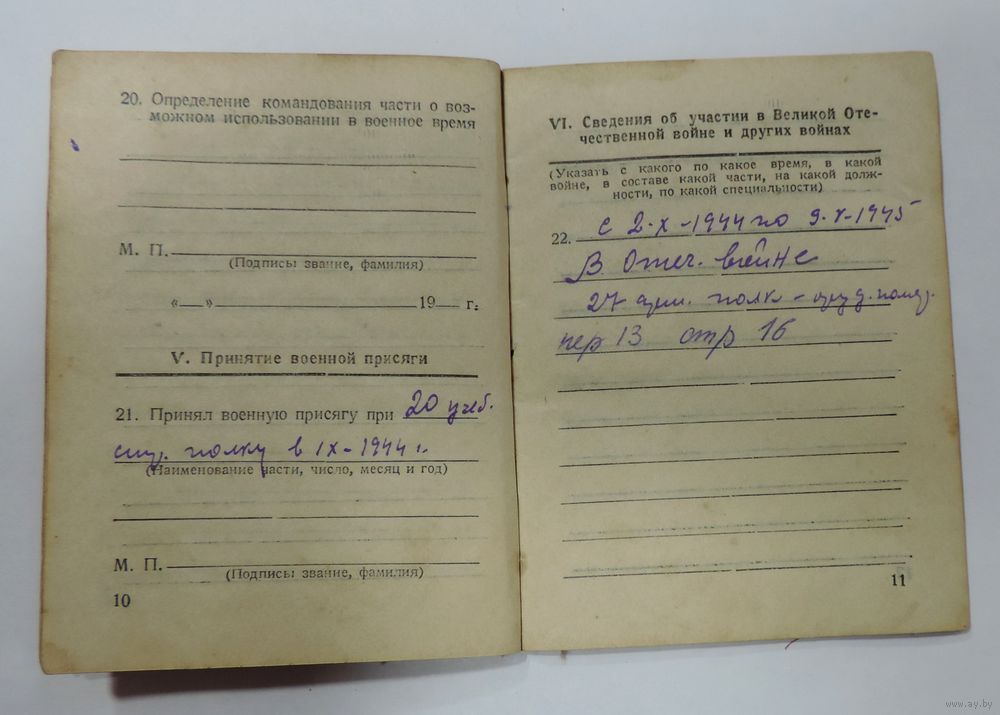 20. Определение командования части о воз-
можном использовании в военное время
М. П.
(Подписы звание, фамилия)
«__» 19__ г.
V. Принятие военной присяги
21. Принял военную присягу при 20 учеб.
полку в IX-1944 г.
(Наименование части, число, месяц и год)
М. П.
(Подписы звание, фамилия)
10
VI. Сведения об участии в Великой Оте-
чественной войне и других войнах
(Указать с какого по какое время, в какой
войне, в составе какой части, на какой долж-
ности, по какой специальности)
22. с 2-X-1944 по 9-V-1945
В Отеч. войне
27 полк -
пер 13 стр 16
11
www.ay.by